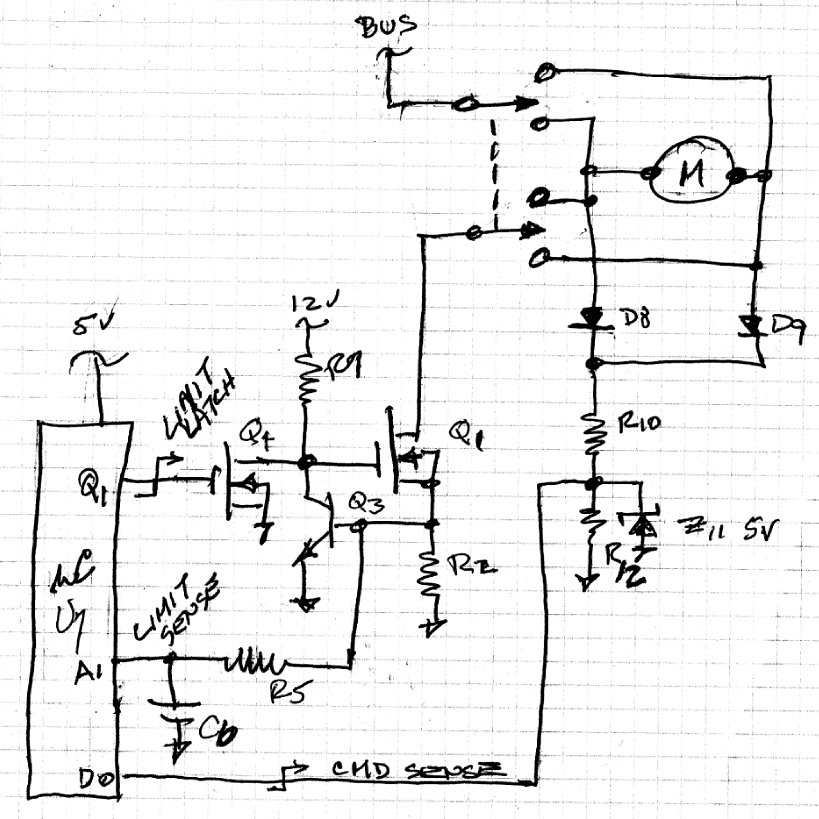 BUS
M
12V
D8
D9
5V
R9
LIMIT
LATCH
R10
Q4
Q1
Q1
Q3
Z11 5V
R12
R2
µC
U7
LIMIT
SENSE
A1
R5
C6
D0
CMD SENSE